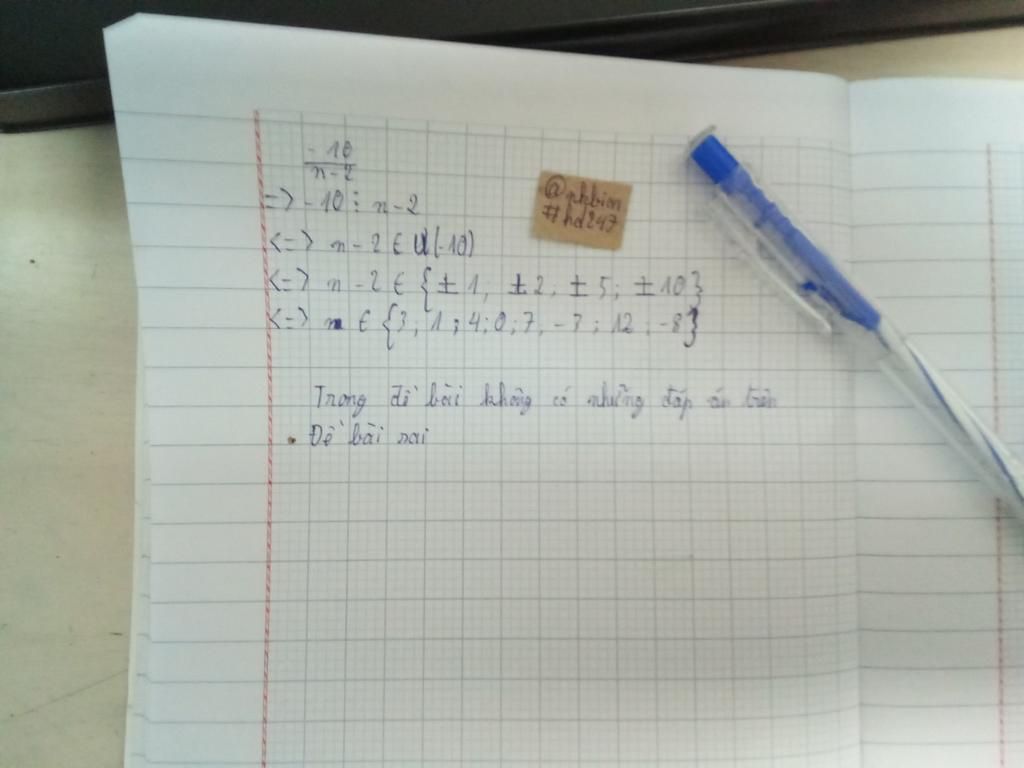 -10
n-2
=> -10 ⋮ n-2
<=> n-2 ∈ Ư(-10)
<=> n-2 ∈ {±1; ±2; ±5; ±10}
<=> n ∈ {3; 1; 4; 0; 7; -3; 12; -8}
@nkbion
#hd247
Trong đề bài không có những đáp án trên
Đề bài sai